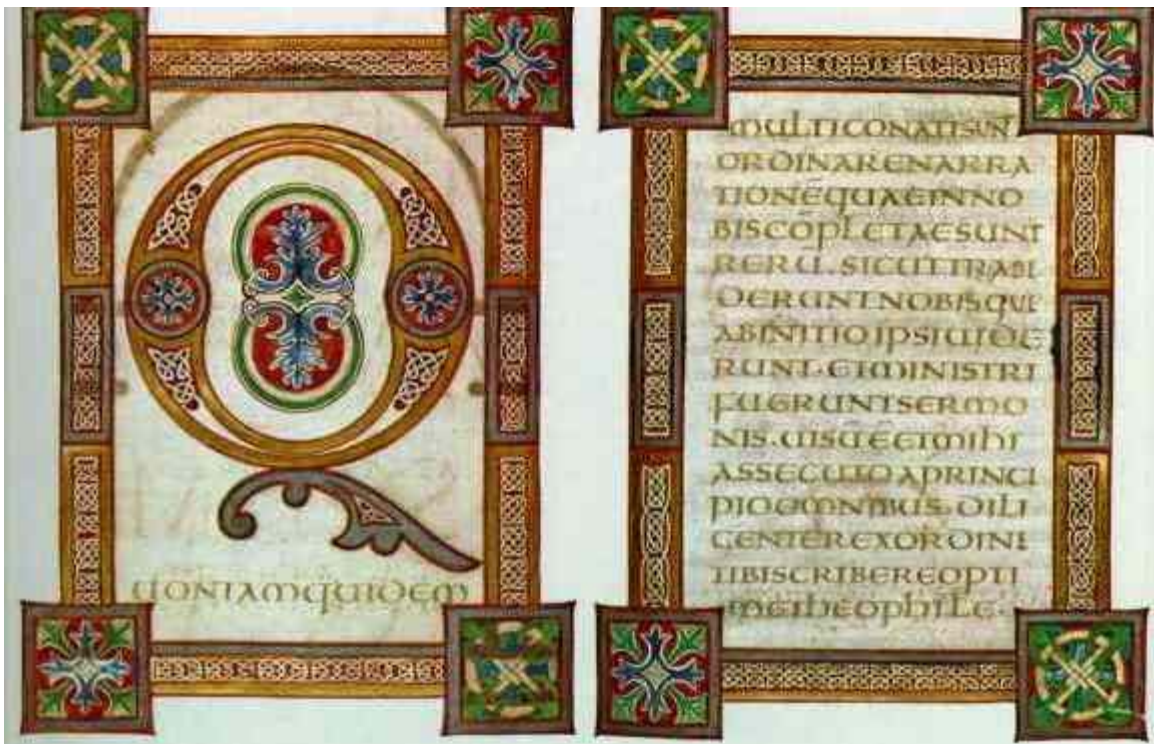 QUONIAMQUIDEM
MULTICONATISUNT
ORDINARENARRA
TIONĒQUAEINNO
BISCŌPLETAESUNT
RERU. SICUTTRADI
DERUNTNOBISQUI
ABINITIOIPSIUIDE
RUNT·ETMINISTRI
FUERUNTSERMO
NIS·UISUEETMIHI
ASSECUTOAPRINCI
PIOOMNIBUS·DILI
GENTEREXORDINE
TIBISCRIBEREOPTI
METHEOPHILE·